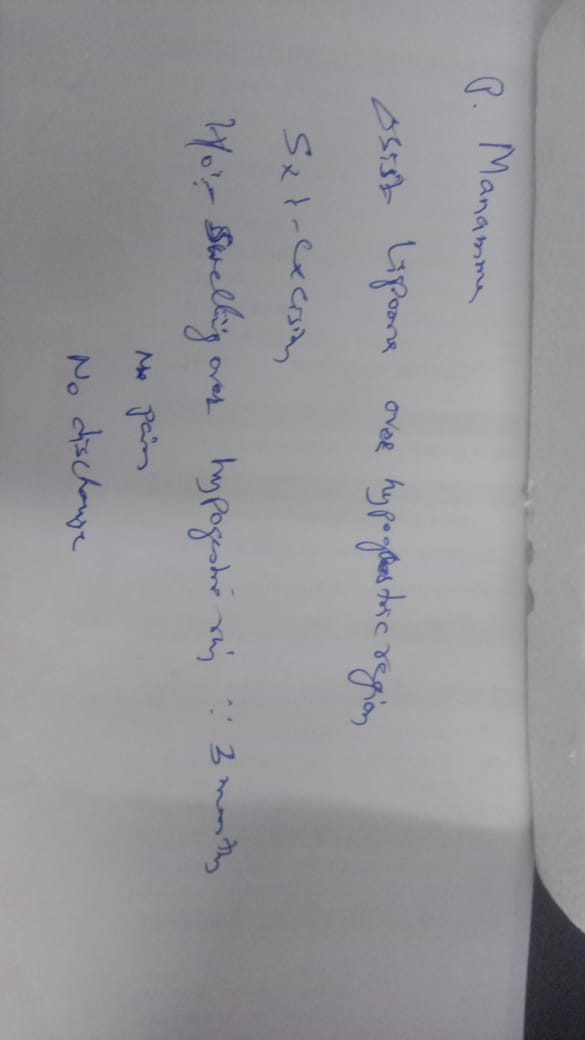 P. Manamma
Lipoma over hypogastric region
Sx :- Excision
H/o :- Swelling over hypogastric ∵ 3 months
No pain
No discharge